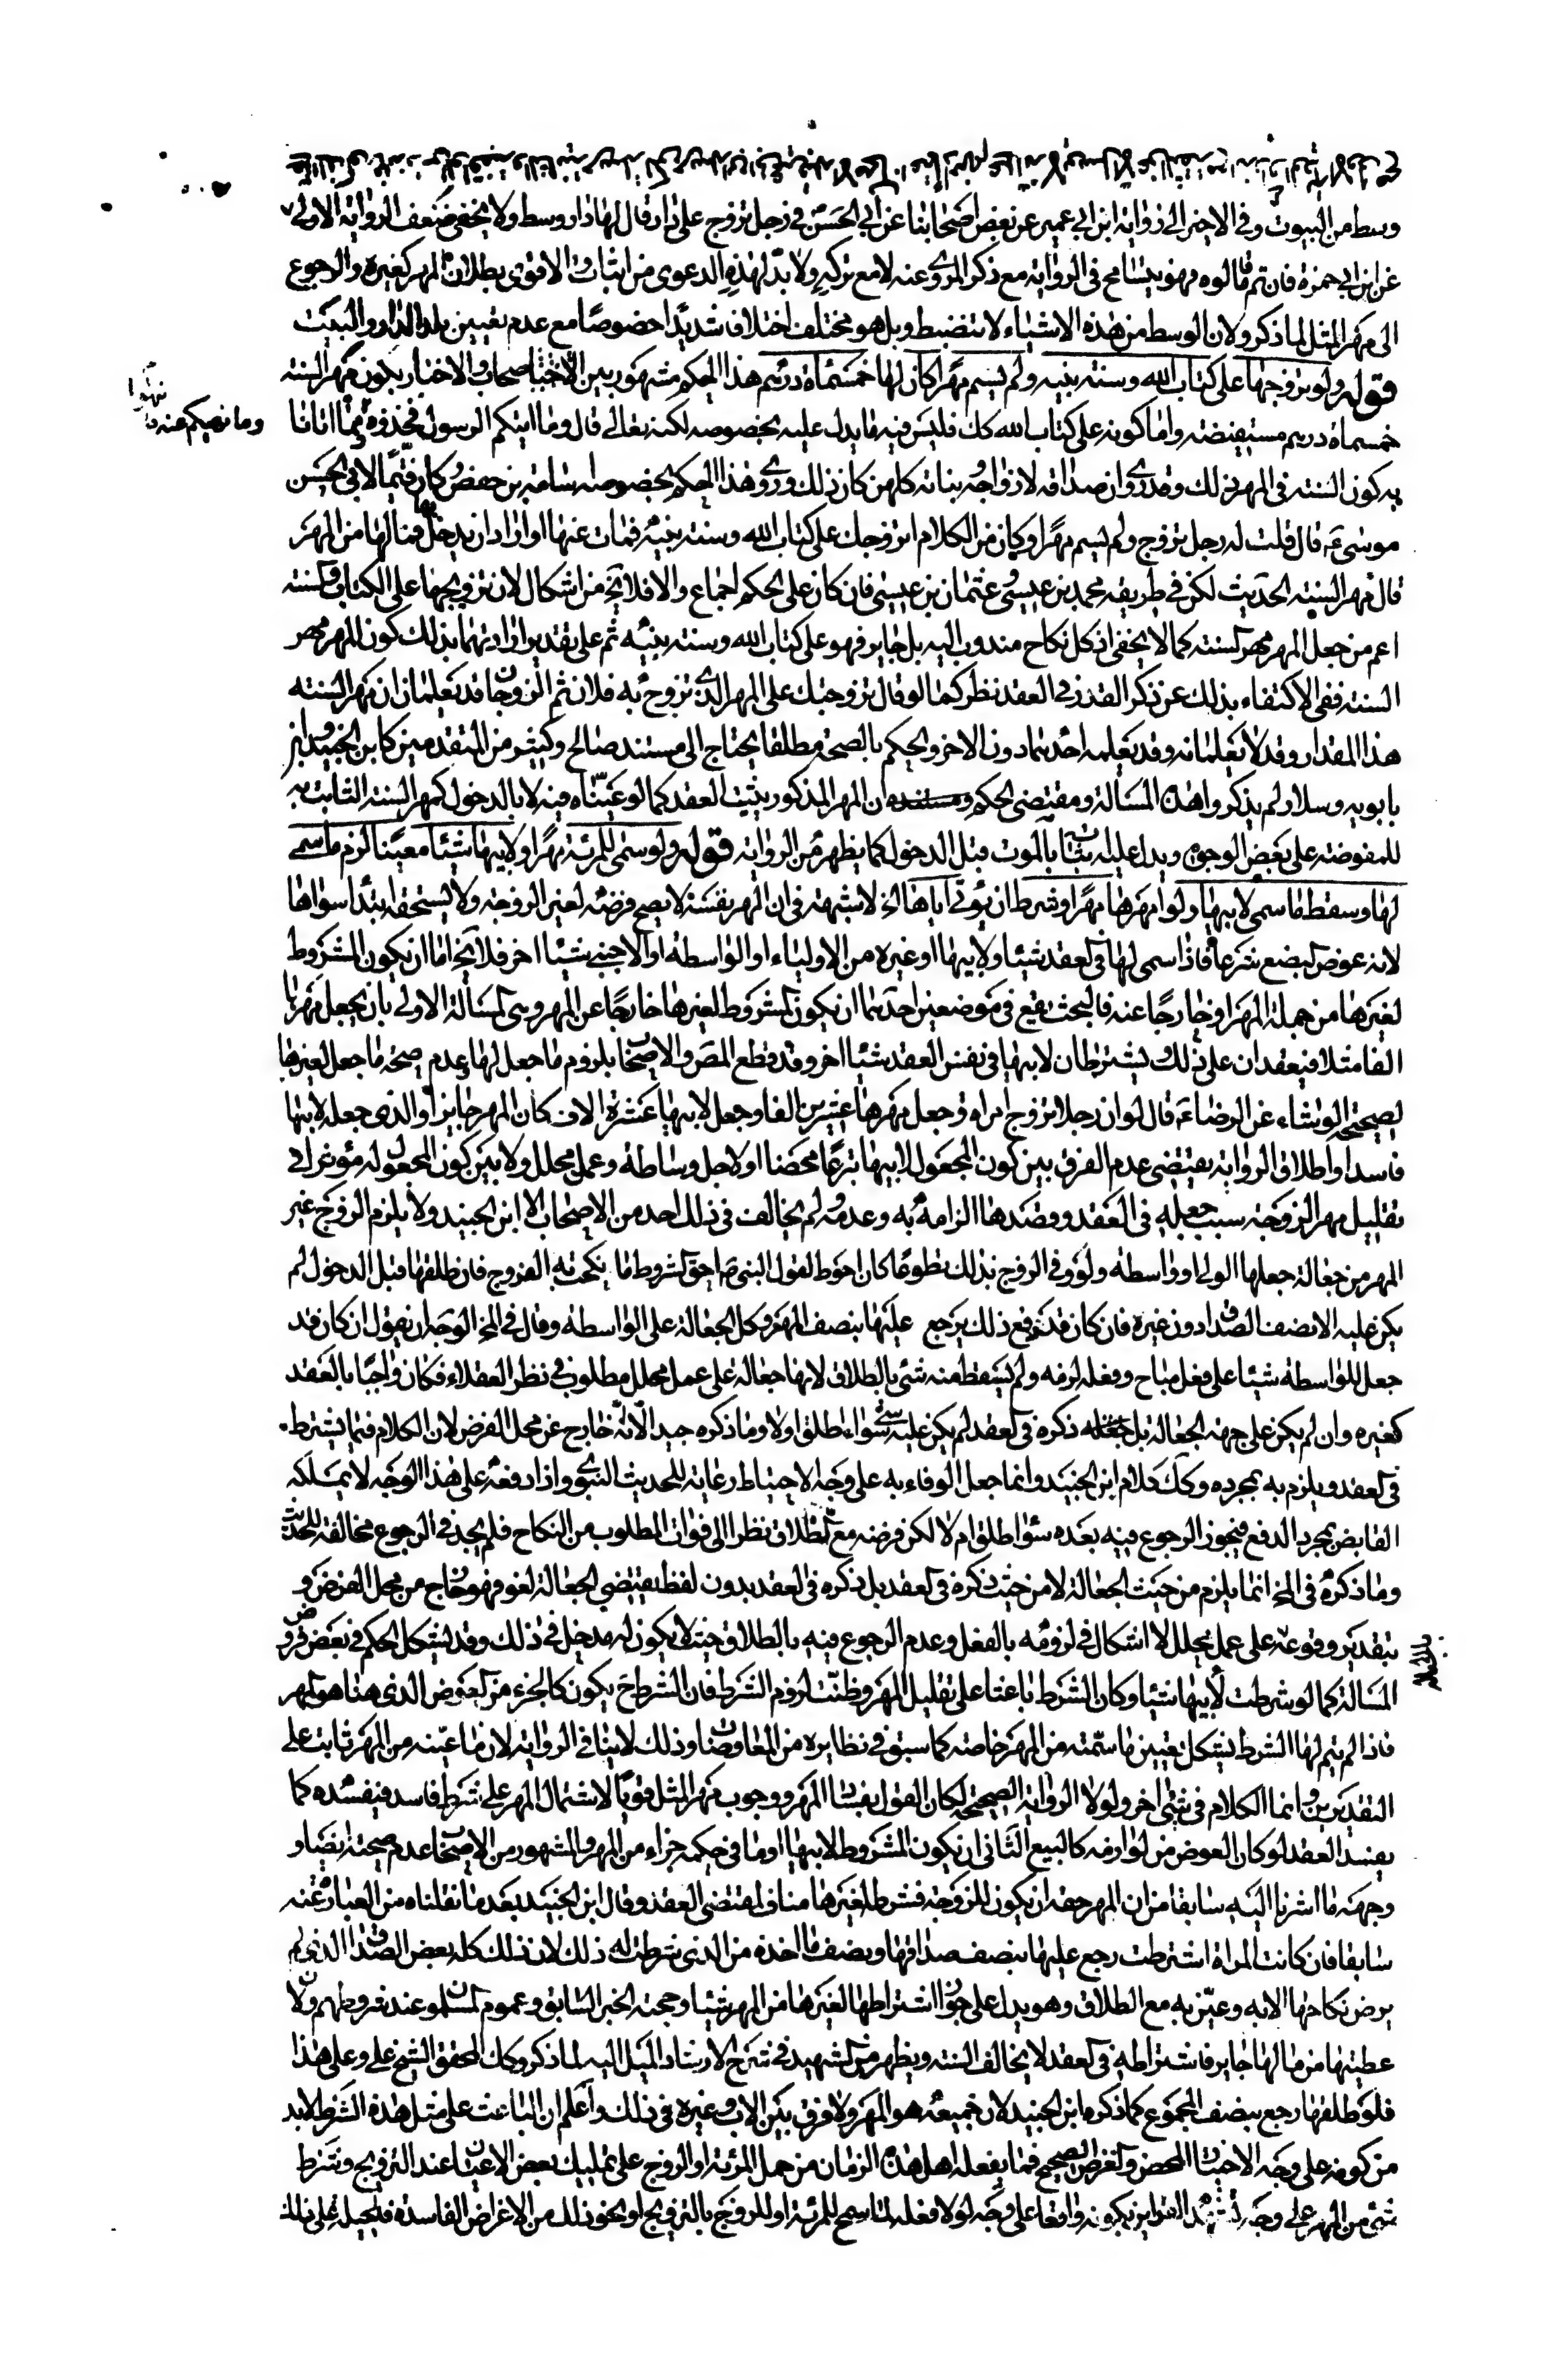 وسط من البيوت وفي الاخير الى رواية ابن ابي عمير عن بعض اصحابنا عن ابي الحسن في رجل تزوج على دار قال لها دار وسط ولا يخفى ضعف الرواية الاولى
عن ابن ابي حمزة فان تم ما قالوه فهو يتسامح في الرواية مع ذكر المروي عنه لا مع تركه ولا بد لهذه الدعوى من اثبات والاقوى بطلان المهر كغيره والرجوع
الى مهر المثل لما ذكر ولان الوسط من هذه الاشياء لا ينضبط بل هو مختلف اختلافا شديدا خصوصا مع عدم تعيين بلد الدار والبيت
قوله ولو تزوجها على كتاب الله وسنة نبيه ولم يسم مهرا كان لها خمسمأة درهم هذا الحكم مشهور بين الاصحاب والاخبار بكون مهر السنة
خمسمأة درهم مستفيضة واما كونه على كتاب الله كك فليس فيه ما يدل عليه بخصوصه لكنه تعالى قال وما اتيكم الرسول فخذوه فمما اتانا
وما نهيكم عنه فانتهوا
به كون السنة في المهر ذلك وقد روي ان صداقه لازواجه وبناته كلهن كان ذلك وروي هذا الحكم بخصوصه اسامة بن حفص وكان قيما لابي الحسن
موسى ع قال قلت له رجل تزوج ولم يسم مهرا وكان في الكلام اتزوجك على كتاب الله وسنة نبيه فمات عنها او اراد ان يدخل بها فما لها من المهر
قال مهر السنة الحديث لكن في طريقه محمد بن عيسى وعثمان بن عيسى فان كان على الحكم اجماع والا فلا يخ من اشكال لان تزويجها على الكتاب والسنة
اعم من جعل المهر مهر السنة كما لا يخفى اذ كل نكاح مندوب اليه بل جايز فهو على كتاب الله وسنة نبيه ثم على تقدير ارادتهما بذلك كون المهر مهر
السنة ففي الاكتفاء بذلك عن ذكر القدر في العقد نظر كما لو قال تزوجتك على المهر الذي تزوج به فلان ثم الزوجان قد يعلمان ان مهر السنة
هذا المقدار وقد لا يعلمانه وقد يعلمه احدهما دون الاخر والحكم بالصحة مطلقا يحتاج الى مستند صالح وكثير من المتقدمين كابن الجنيد وابن
بابويه وسلار لم يذكروا هذه المسألة ومقتضى الحكم ان المهر المذكور يثبت بالعقد كما لو عيناه فيه لا بالدخول كمهر السنة الثابت به
للمفوضة على بعض الوجوه ويدل عليه ثباته بالموت قبل الدخول كما يظهر من الرواية قوله ولو سمى للمرئة مهرا ولابيها شيئا معينا لزم ما سمى
لها وسقط ما سمى لابيها ولو امهرها مهرا وشرط ان يؤتي اباها الخ لا شبهة في ان المهر نفسه لا يصح فرضه لغير الزوجة ولا يستحقه ابتداء سواها
لانه عوض البضع شرعا فاذا سمى لها في العقد شيئا ولابيها او غيره من الاولياء او الواسطة او الاجنبي شيئا اخر فلا يخ اما ان يكون المشروط
لغيرها من جملة المهر او خارجا عنه فالبحث يقع في موضعين احدهما ان يكون المشروط لغيرها خارجا عن المهر وهي المسألة الاولى بان يجعل مهرها
الفا مثلا فيعقدان على ذلك ويشترطان لابيها في نفس العقد شيئا اخر وقد قطع المص والاصحاب بلزوم ما جعل لها وعدم صحة ما جعل لغيرها
لصحيحة الوشاء عن الرضا ع قال لو ان رجلا تزوج امراة وجعل مهرها عشرين الفا وجعل لابيها عشرة الاف كان المهر جايزا والذي جعله لابيها
فاسدا واطلاق الرواية يقتضي عدم الفرق بين كون المجعول لابيها تبرعا محضا او لاجل وساطة وعمل محلل ولا بين كون المجعول له مؤثرا في
تقليل مهر الزوجة بسبب جعله في العقد وقصدها الزامه به وعدمه ولم يخالف في ذلك احد من الاصحاب الا ابن الجنيد ولا يلزم الزوج غير
المهر من جعالة جعلها الولي او واسطة ولو وفى الزوج بذلك تطوعا كان احوط لقول النبي ص احق الشروط ما نكحت به الفروج فان طلقها قبل الدخول لم
يكن عليه الا نصف الصداق دون غيره فان كان قد دفع ذلك يرجع عليها بنصف المهر وكل الجعالة على الواسطة وقال في المخ الوجه ان نقول ان كان قد
جعل للواسطة شيئا على فعل مباح وفعله لزمه ولم يسقط منه شئ بالطلاق لانها جعالة على عمل محلل مطلوب في نظر العقلاء فكان واجبا بالعقد
كغيره وان لم يكن على جهة الجعالة بل ذكره في العقد لم يكن عليه شئ سواء طلق او لا وما ذكره جيد الا انه خارج عن محل الفرض لان الكلام فيما يشترط
في العقد ويلزم به بمجرده وكك كلام ابن الجنيد وانما جعل الوفاء به على وجه الاحتياط رعاية للحديث النبوي واذا دفعه على هذا الوجه لا يملكه
القابض بمجرد الدفع فيجوز الرجوع فيه بعده سواء طلق ام لا لكن فرضه مع الطلاق نظرا الى فوات المطلوب من النكاح فلم يجد في الرجوع مخالفة للحديث
وما ذكره في المخ انما يلزم من حيث الجعالة لا من حيث ذكره في العقد بل ذكره في العقد بدون لفظ يقتضي الجعالة لغو فهو خارج من محل الفرض و
بتقدير وقوعه على عمل محلل لا اشكال في لزومه بالفعل وعدم الرجوع فيه بالطلاق حيث لا يكون له مدخل في ذلك وقد يشكل الحكم في بعض فروض
المسألة كما لو شرطت لابيها شيئا وكان الشرط باعثا على تقليل المهر وظنت لزوم الشرط فان الشرط ح يكون كالجزء من العوض الذي هنا هو المهر
فاذا لم يتم لها الشرط يشكل تعيين ما سمته من المهر خاصة كما سبق في نظايره من المعاوضات وذلك لا ينافي الرواية لان ما عينه من المهر ثابت على
التقديرين وانما الكلام في شئ اخر ولولا الرواية الصحيحة لكان القول بفساد المهر ووجوب مهر المثل قويا لاشتمال المهر على شرط فاسد فيفسده كما
يفسد العقد لو كان العوض من لوازمه كالبيع الثاني ان يكون المشروط لابيها او ما في حكمه جزاء من المهر والمشهور من الاصحاب عدم صحته ايضا و
وجهه ما اشرنا اليه سابقا من ان المهر حقه ان يكون للزوجة فشرطه لغيرها مناف لمقتضى العقد وقال ابن الجنيد بعد ما نقلناه من العبارة عنه
سابقا فان كانت المراة اشترطت رجع عليها بنصف صداقها وبنصف ما اخذه من الذي شرطت له ذلك لان ذلك كله بعض الصداق الذي لم
يرض نكاحها الا به وعين به مع الطلاق وهو يدل على جواز اشتراطها لغيرها من المهر شيئا وحجته الخبر السابق وعموم المسلمون عند شروطهم ولان
عطيتها من مالها جايز فاشتراطه في العقد لا يخالف السنة ويظهر من الشهيد في شرح الارشاد الميل اليه لما ذكر وكك المحقق الشيخ علي وعلى هذا
فلو طلقها رجع بنصف المجموع كما ذكره ابن الجنيد لان جميعه هو المهر ولا فرق بين الاب وغيره في ذلك واعلم ان الباعث على مثل هذه الشرط لابد
من كونه على وجه الاختيار المحض والغرض الصحيح فما يفعله اهل هذه الزمان من حمل المرئة او الزوج على تمليك بعض الاعيان عند التزويج وشرط
شئ من المهر على وجه تشهد القراين بكونه واقعا على وجه لولا فعله لما سمح للمرئة او للزوج بالتزويج او نحو ذلك من الاغراض الفاسدة فلا يحل على ذلك